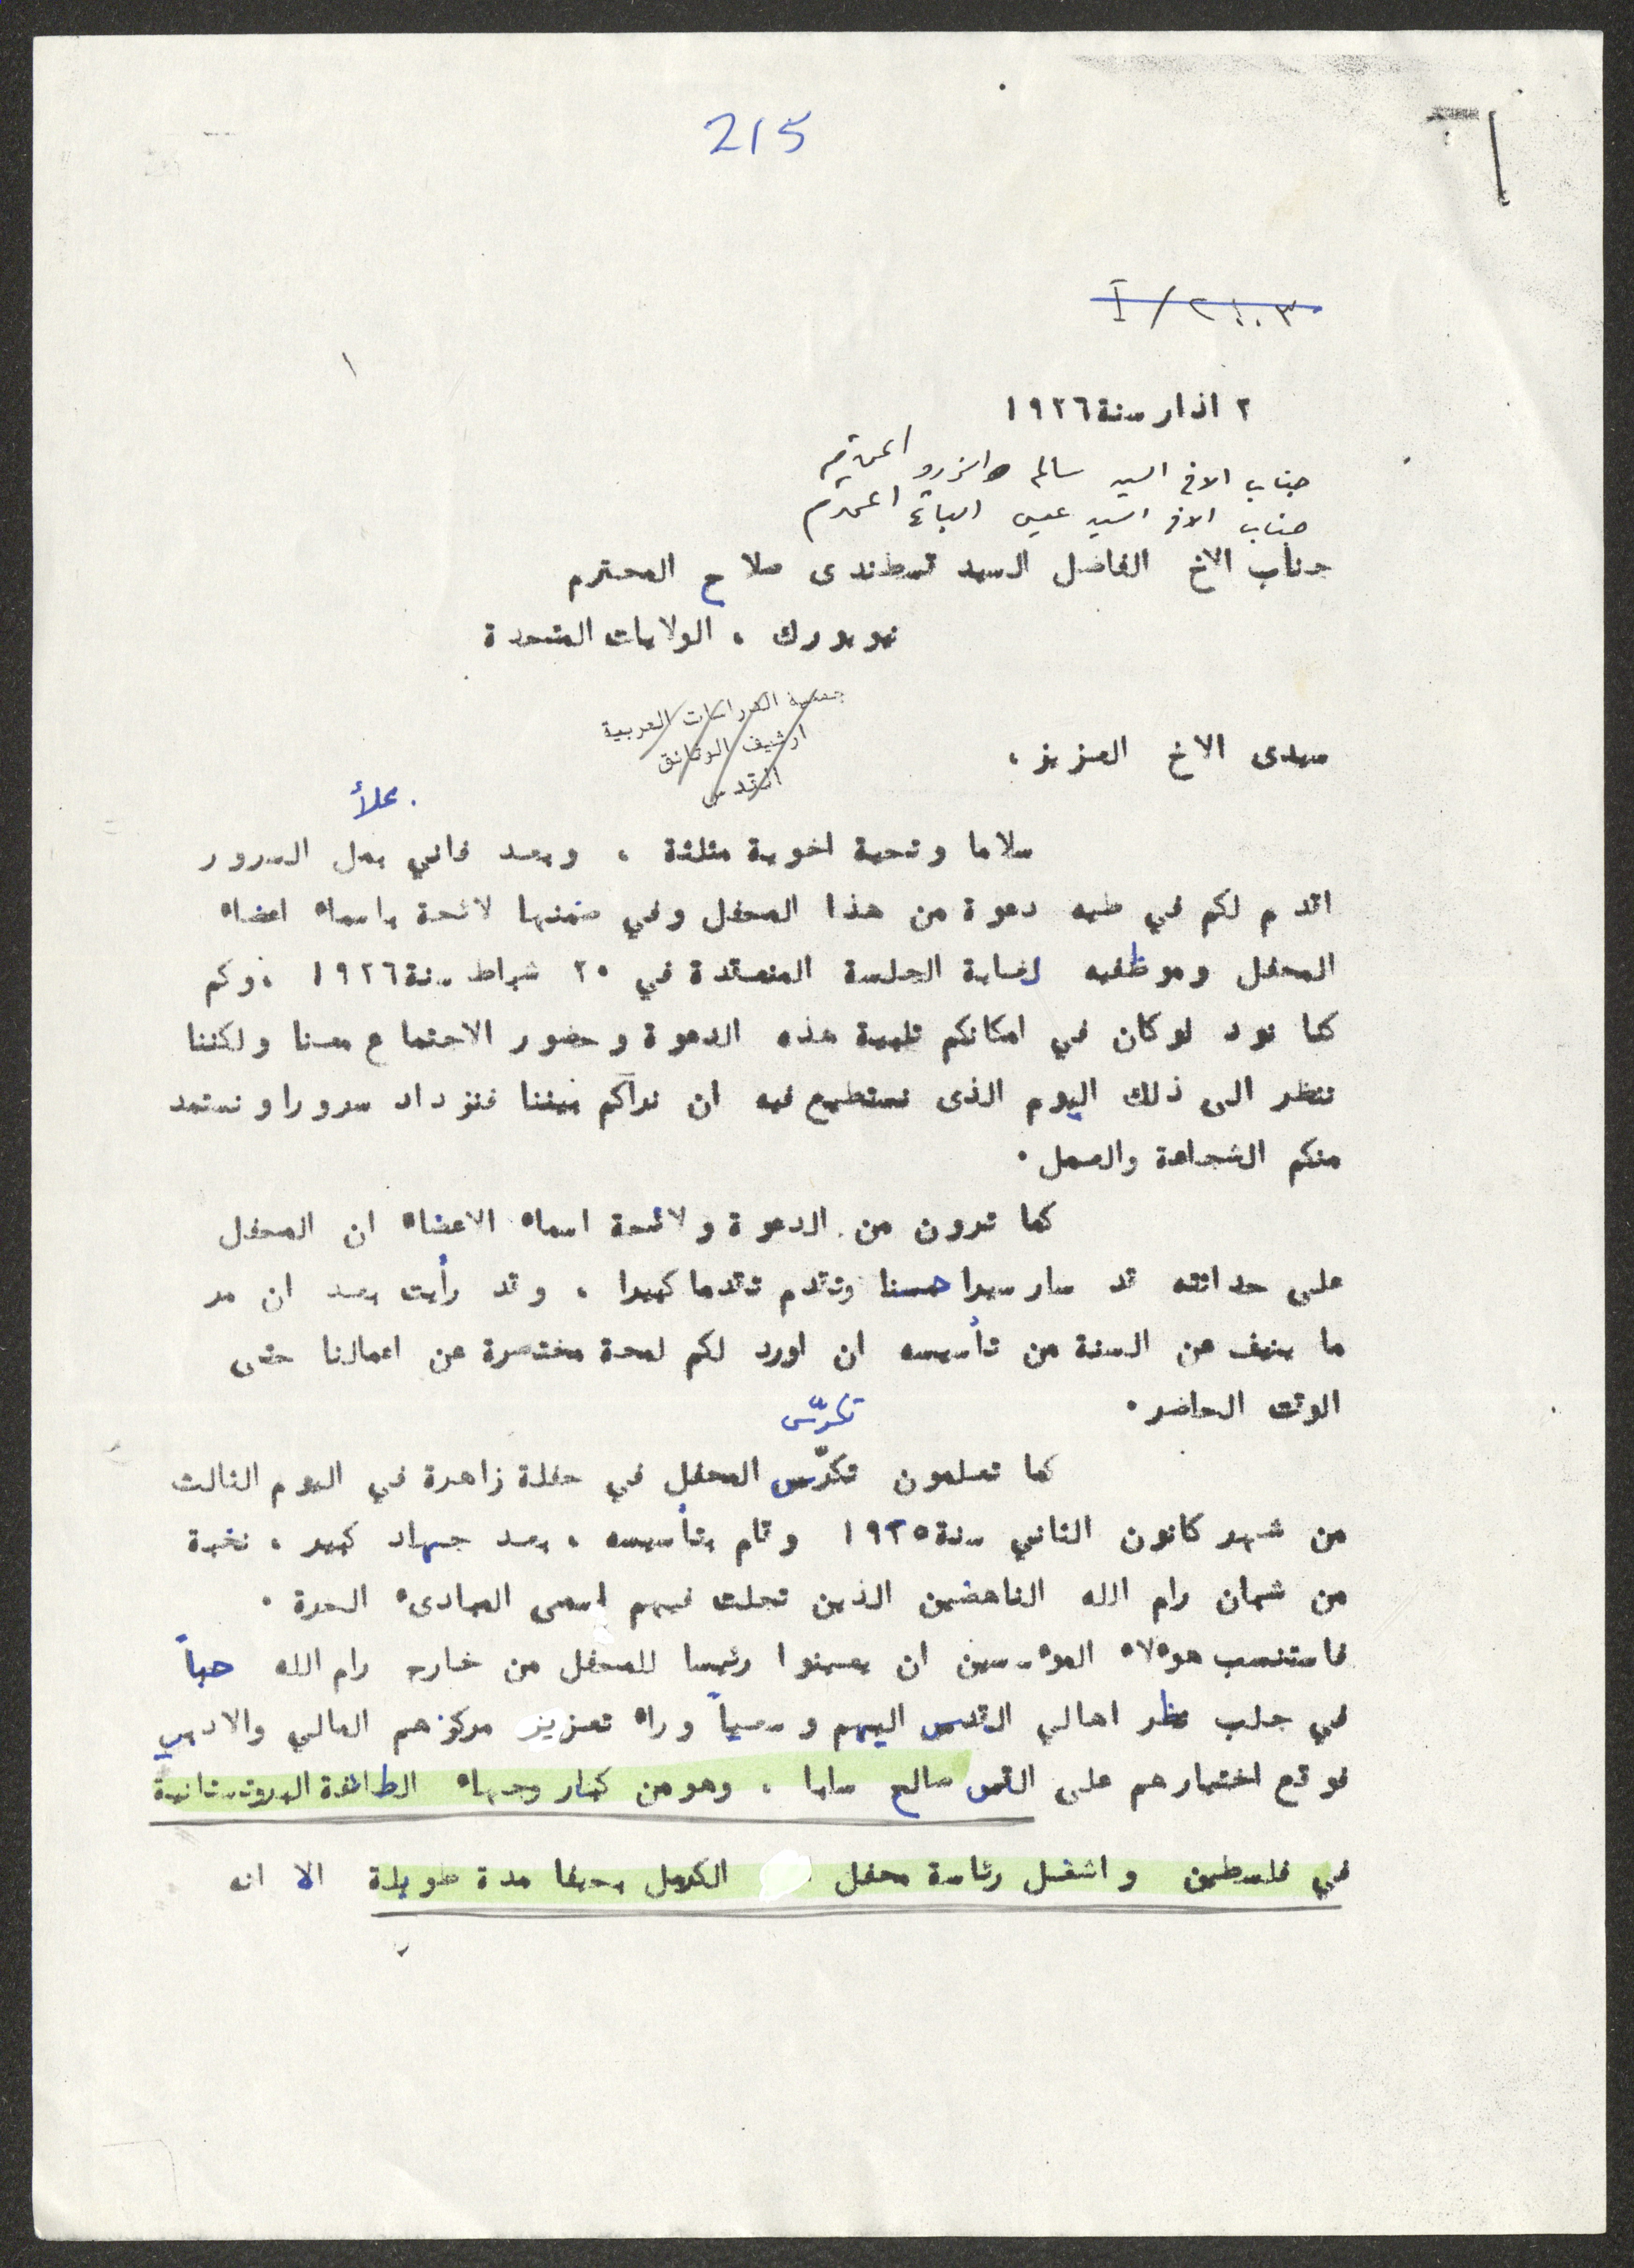 215
I / ٢١٠٠٣
١
٢ اذار سنة ١٩٢٦
جناب الاخ السيد سالم الزرو المحترم
جناب الاخ السيد عيسى الباتع المحترم
جناب الاخ الفاضل السيد قسطندى صلاح المحترم
نيويورك ، الولايات المتحدة
جمعية الدراسات العربية
ارشيف الوثائق
القدس
سيدى الاخ العزيز ،
بملأ
سلاما وتحية اخوية مثلثة ، وبعد فاني بمل السرور
اقدم لكم في طيه دعوة من هذا المحفل وفي ضمنها لائحة باسماء اعضاء
المحفل وموظفيه لغاية الجلسة المنعقدة في ٢٠ شباط سنة ١٩٢٦ ،وكم
كنا نود لوكان في امكانكم تلبية هذه الدعوة وحضور الاجتماع معنا ولكننا
ننظر الى ذلك اليوم الذى نستطيع فيه ان نراكم بيننا فنزداد سرورا ونستمد
منكم الشجاعة والعمل .
كما ترون من الدعوة ولائحة اسماء الاعضاء ان المحفل
على حداثته قد سار سيرا حسنا وتقدم تقدما كبيرا ، وقد رأيت بعد ان مر
ما ينيف عن السنة من تأسيسه ان اورد لكم لمحة مختصرة عن اعمالنا حتى
الوقت الحاضر .
تكرّس
كما تعلمون تكرّس المحفل في حفلة زاهرة في اليوم الثالث
من شهر كانون الثاني سنة ١٩٢٥ وقام بتأسيسه ، بعد جهاد كبير ، نخبة
من شبان رام الله الناهضين الذين تجلت فيهم اسمى المبادىء الحرة .
فاستنسب هوءلاء الموءسسين ان يعينوا رئيسا للمحفل من خارج رام الله حباً
في جلب نظر اهالي القدس اليهم وسعياً وراء تعزيز مركزهم المالي والادبي
فوقع اختيارهم على القس صالح سابا ، وهو من كبار وجهاء الطائفة البروتستانية
في فلسطين واشغل رئاسة محفل الكرمل بحيفا مدة طويلة الا انه